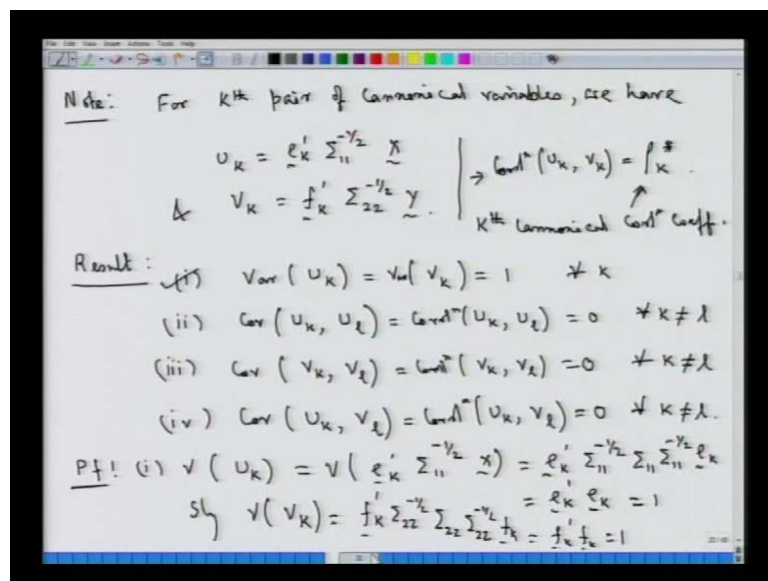 File Edit View Insert Actions Tools Help
Note: For Kth pair of Cannonical variables, we have
U_K = e_K' Σ_11^{-1/2} x
& V_K = f_K' Σ_22^{-1/2} y.
→ Corrl^n (U_K, V_K) = ρ_K^*.
↑
Kth Cannonical Corrl^n Coeff.
Result:
(i) Var(U_K) = Var(V_K) = 1 ∀ K
(ii) Cov(U_K, U_l) = Corrl^n(U_K, U_l) = 0 ∀ K ≠ l
(iii) Cov(V_K, V_l) = Corrl^n(V_K, V_l) = 0 ∀ K ≠ l
(iv) Cov(U_K, V_l) = Corrl^n(U_K, V_l) = 0 ∀ K ≠ l.
Pf! (i) V(U_K) = V(e_K' Σ_11^{-1/2} x) = e_K' Σ_11^{-1/2} Σ_11 Σ_11^{-1/2} e_K
= e_K' e_K = 1
Sly V(V_K) = f_K' Σ_22^{-1/2} Σ_22 Σ_22^{-1/2} f_K = f_K' f_K = 1